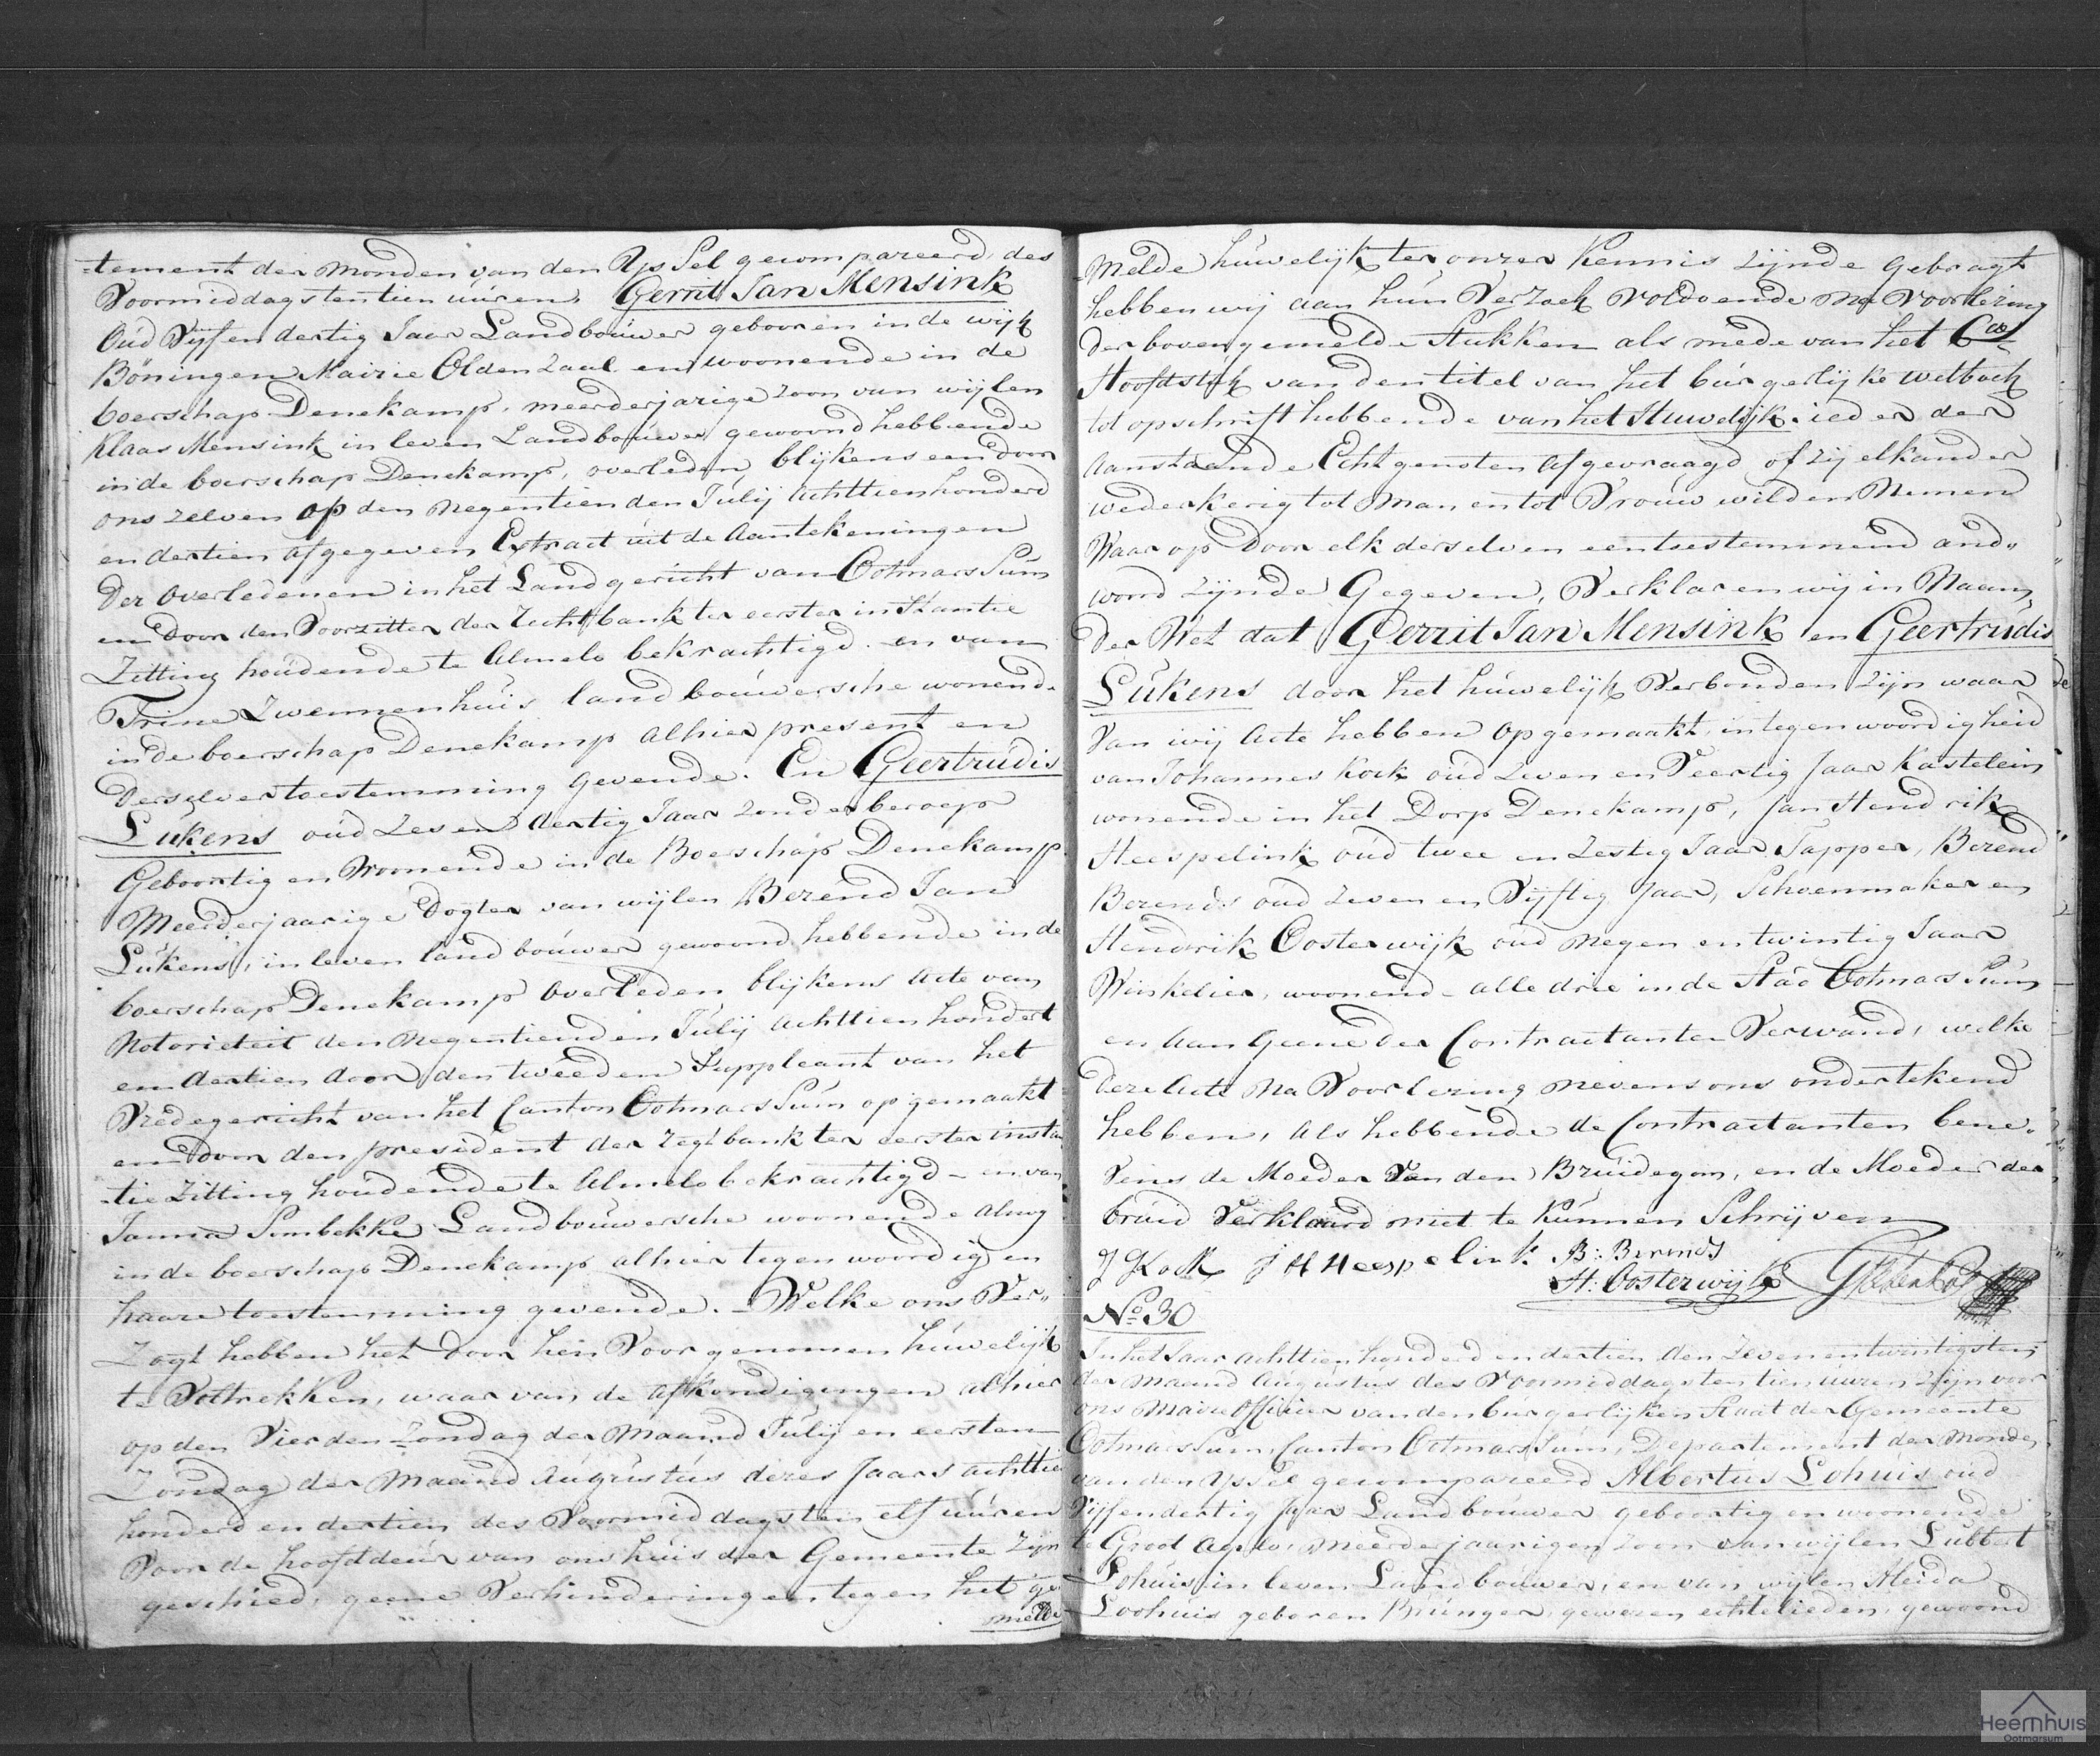 -tement der Monden van den YsSel gecompareerd, des
Voormiddags ten tien uúren, Gerrit Jan Mensink
Oúd Vyf en dertig Jaar Landboúwer gebooren in de wijk
Böningen Mairie OldenZaal en woonende in de
boerschap Denekamp, meerderjarige Zoon van wijlen
Klaas Mensink in leven Landboúwer gewoond hebbende
in de boerschap Denekamp, overleden blijkens een door
ons zelven op den Negentienden Júlij Achttienhonderd
en dertien afgegeven Extract úit de Aantekeningen
Der Overledenen in het Landgericht van OotmarsSúm
en door den Voorzitter der Rechtbank ter eerster inStantie
Zitting hoúdende te Almelo bekrachtigd. en van
Trine Zwennenhúis landboúwersche wonende
in de boerschap Denekamp alhier present en
Derselver toestemming gevende. En Geertrúdis
Lúkens oúd Zeven dertig Jaar zonder beroep
Geboortig en Woonende in de Boerschap Denekamp
Meerderjaarige Dogter van wijlen Berend Jan
Lúkens, in leven landboúwer gewoond hebbende in de
boerschap Denekamp Overleden blijkens Acte van
Notorieteit den Negentienden Júlij Achttienhondert
en dertien door den tweeden Suppleant van het
Vredegericht van het Canton OotmarsSúm opgemaakt
en door den president der Regtbank ter eerster instan
-tie Zitting hoúdende te Almelo bekrachtigd - en van
Janna Landboúwersche woonende
in de boerschap Denekamp alhier tegenwoordig en
haare toestemming gevende. - Welke ons Ver„
Zogt hebben het door hen Voorgenomen húwelijk
te Voltrekken, waar van de Afkondigingen alhier
op den Vierden Zondag der Maand Júlij en eersten
Zondag der Maand Aúgústús dezes Jaars achttien
honderd en dertien des Voormiddags ten elf úúren
Voor de hoofddeúr van ons húis der Gemeente Zijn
geschied, geene Verhinderingen tegen het ge
melde
-Melde húwelijk ter onzer Kennis zijnde gebragt
hebben wij aan hún Verzoek Voldoende Na Voorlezing
Der bovengemelde Stúkken als mede van het 6de
Hoofdstúk van den titel van het búrgerlijke wetboek
tot opschrift hebbende van het Húwelijk. ieder der
Aanstaande Echtgenoten Afgevraagd of zij elkander
wederkerig tot Man en tot Vroúw wilden Nemen
Waar op Door elk derselven een toestemmend and„
woord zijnde Gegeven, Verklaren wij in Naam
Der Wet dat Gerrit Jan Mensink en Geertrúdis
Lúkens door het húwelijk Verbonden Zijn waar
Van wij Acte hebben opgemaakt in tegenwoordigheid
van Johannes Kock oúd Zeven en Veertig Jaar Kastelein
wonende in het Dorp Denekamp, Jan Hendrik
Heespelink oúd twee en Zestig Jaar Tapper, Berend
Berends oúd Zeven en Vijftig Jaar, Schoenmaker en
Hendrik Oosterwijk oúd Negen en twintig Jaar
Winkelier, woonende alle drie in de Stad OotmarsSúm
en Aan Geene der Contractanten Verwand, welke
Deze Acte Na Voorlezing Nevens ons ondertekend
hebben, Als hebbende de Contractanten bene„
Vens de Moeder Van den Brúidegom, en de Moeder der
brúid Verklaard niet te Kúnnen Schrijven
J Kock J H Heespelink B: Berends
H: Oosterwijk
No 30
In het Jaar Achttienhonderd en dertien den Zevenentwintigsten
der Maand Aúgústús des Voormiddags ten tien úúren zijn voor
ons Maire Officier van den búrgerlijken Staat der Gemeente
OotmarsSúm, Canton OotmarsSúm, Departement der Monden
van den YsSel gecompareerd Albertús Lohúis oúd
Vijfendertig Jaar Landboúwer geboortig en woonende
te Groot Agelo, Meerderjaarigen Zoon van wijlen Lúbbert
Lohúis in leven Landboúwer, en van wijlen Aleida
Loohúis geboren Brúnger, gewezen echtelieden, gewoond